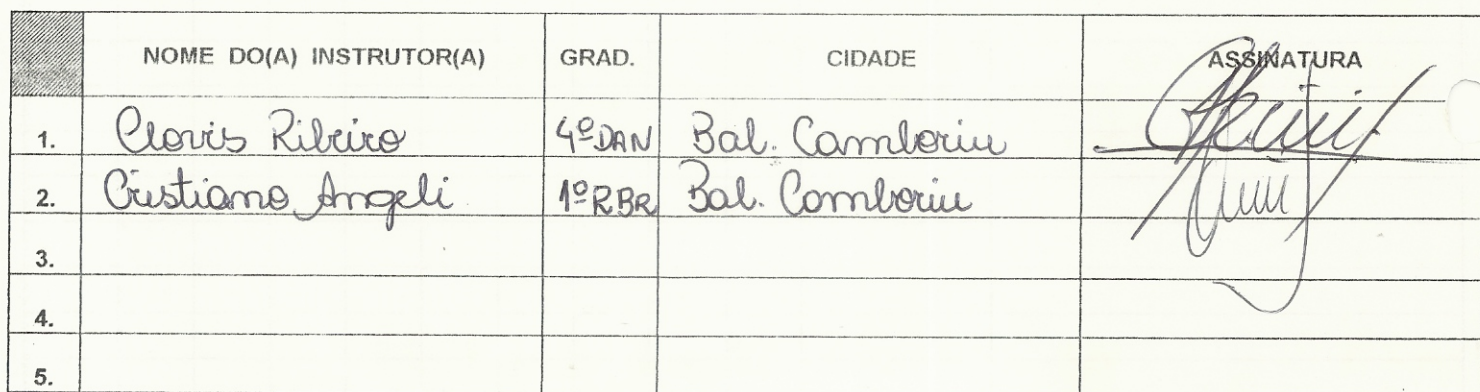 NOME DO(A) INSTRUTOR(A) GRAD. CIDADE ASSINATURA
1. Clovis Ribeiro 4º DAN Bal. Camboriu
2. Cristiano Angeli 1º RBR Bal. Camboriu
3.
4.
5.